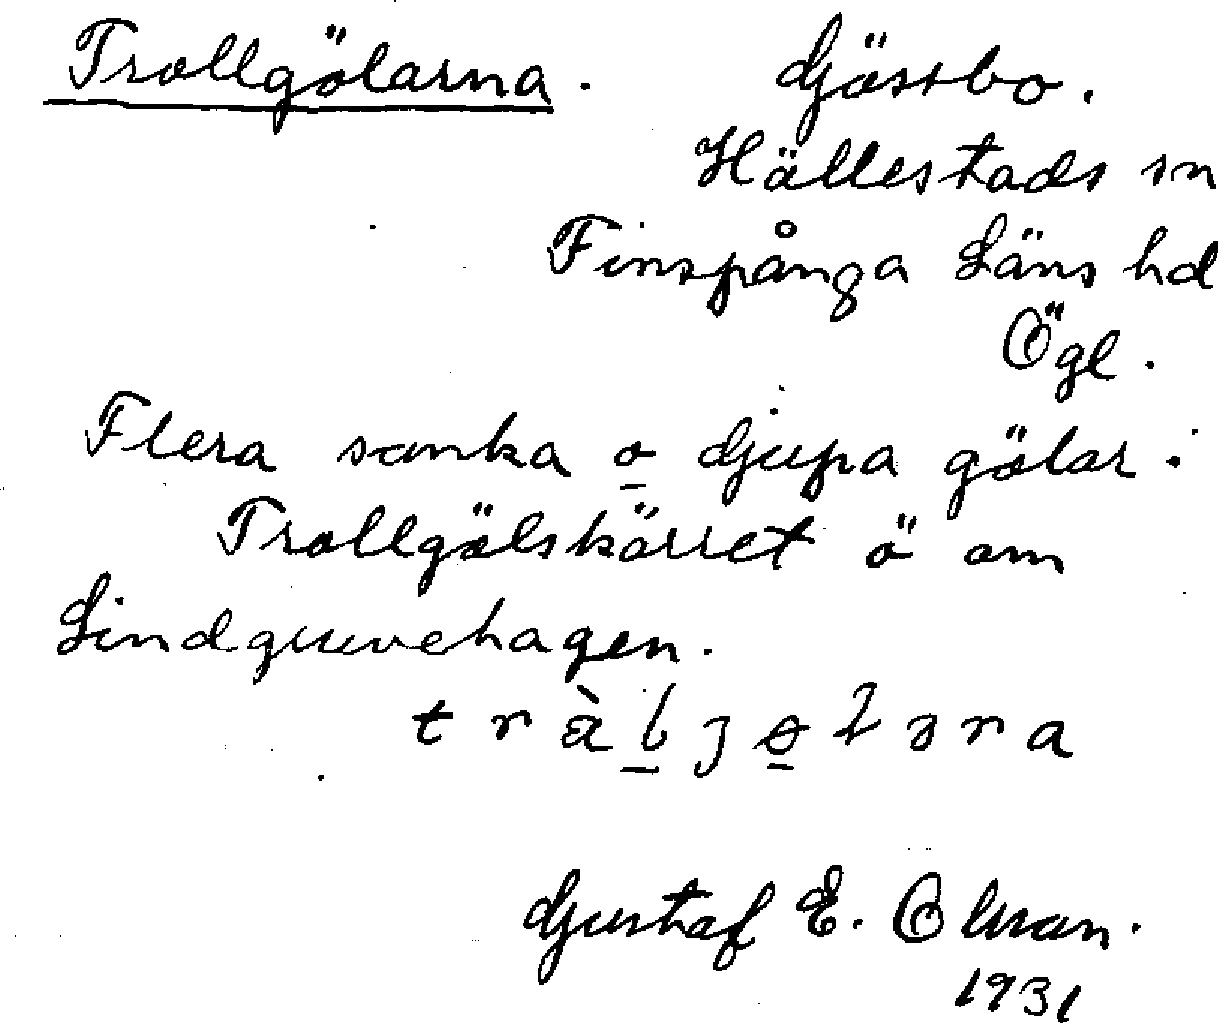 Trollgölarna. Gössbo.
Hällestads sn
Finspånga Läns hd
Ögl.
Flera sanka o djupa gölar i
Trollgölskärret ö om
Lindgruvehagen.
Gustaf E. Olsson.
1931